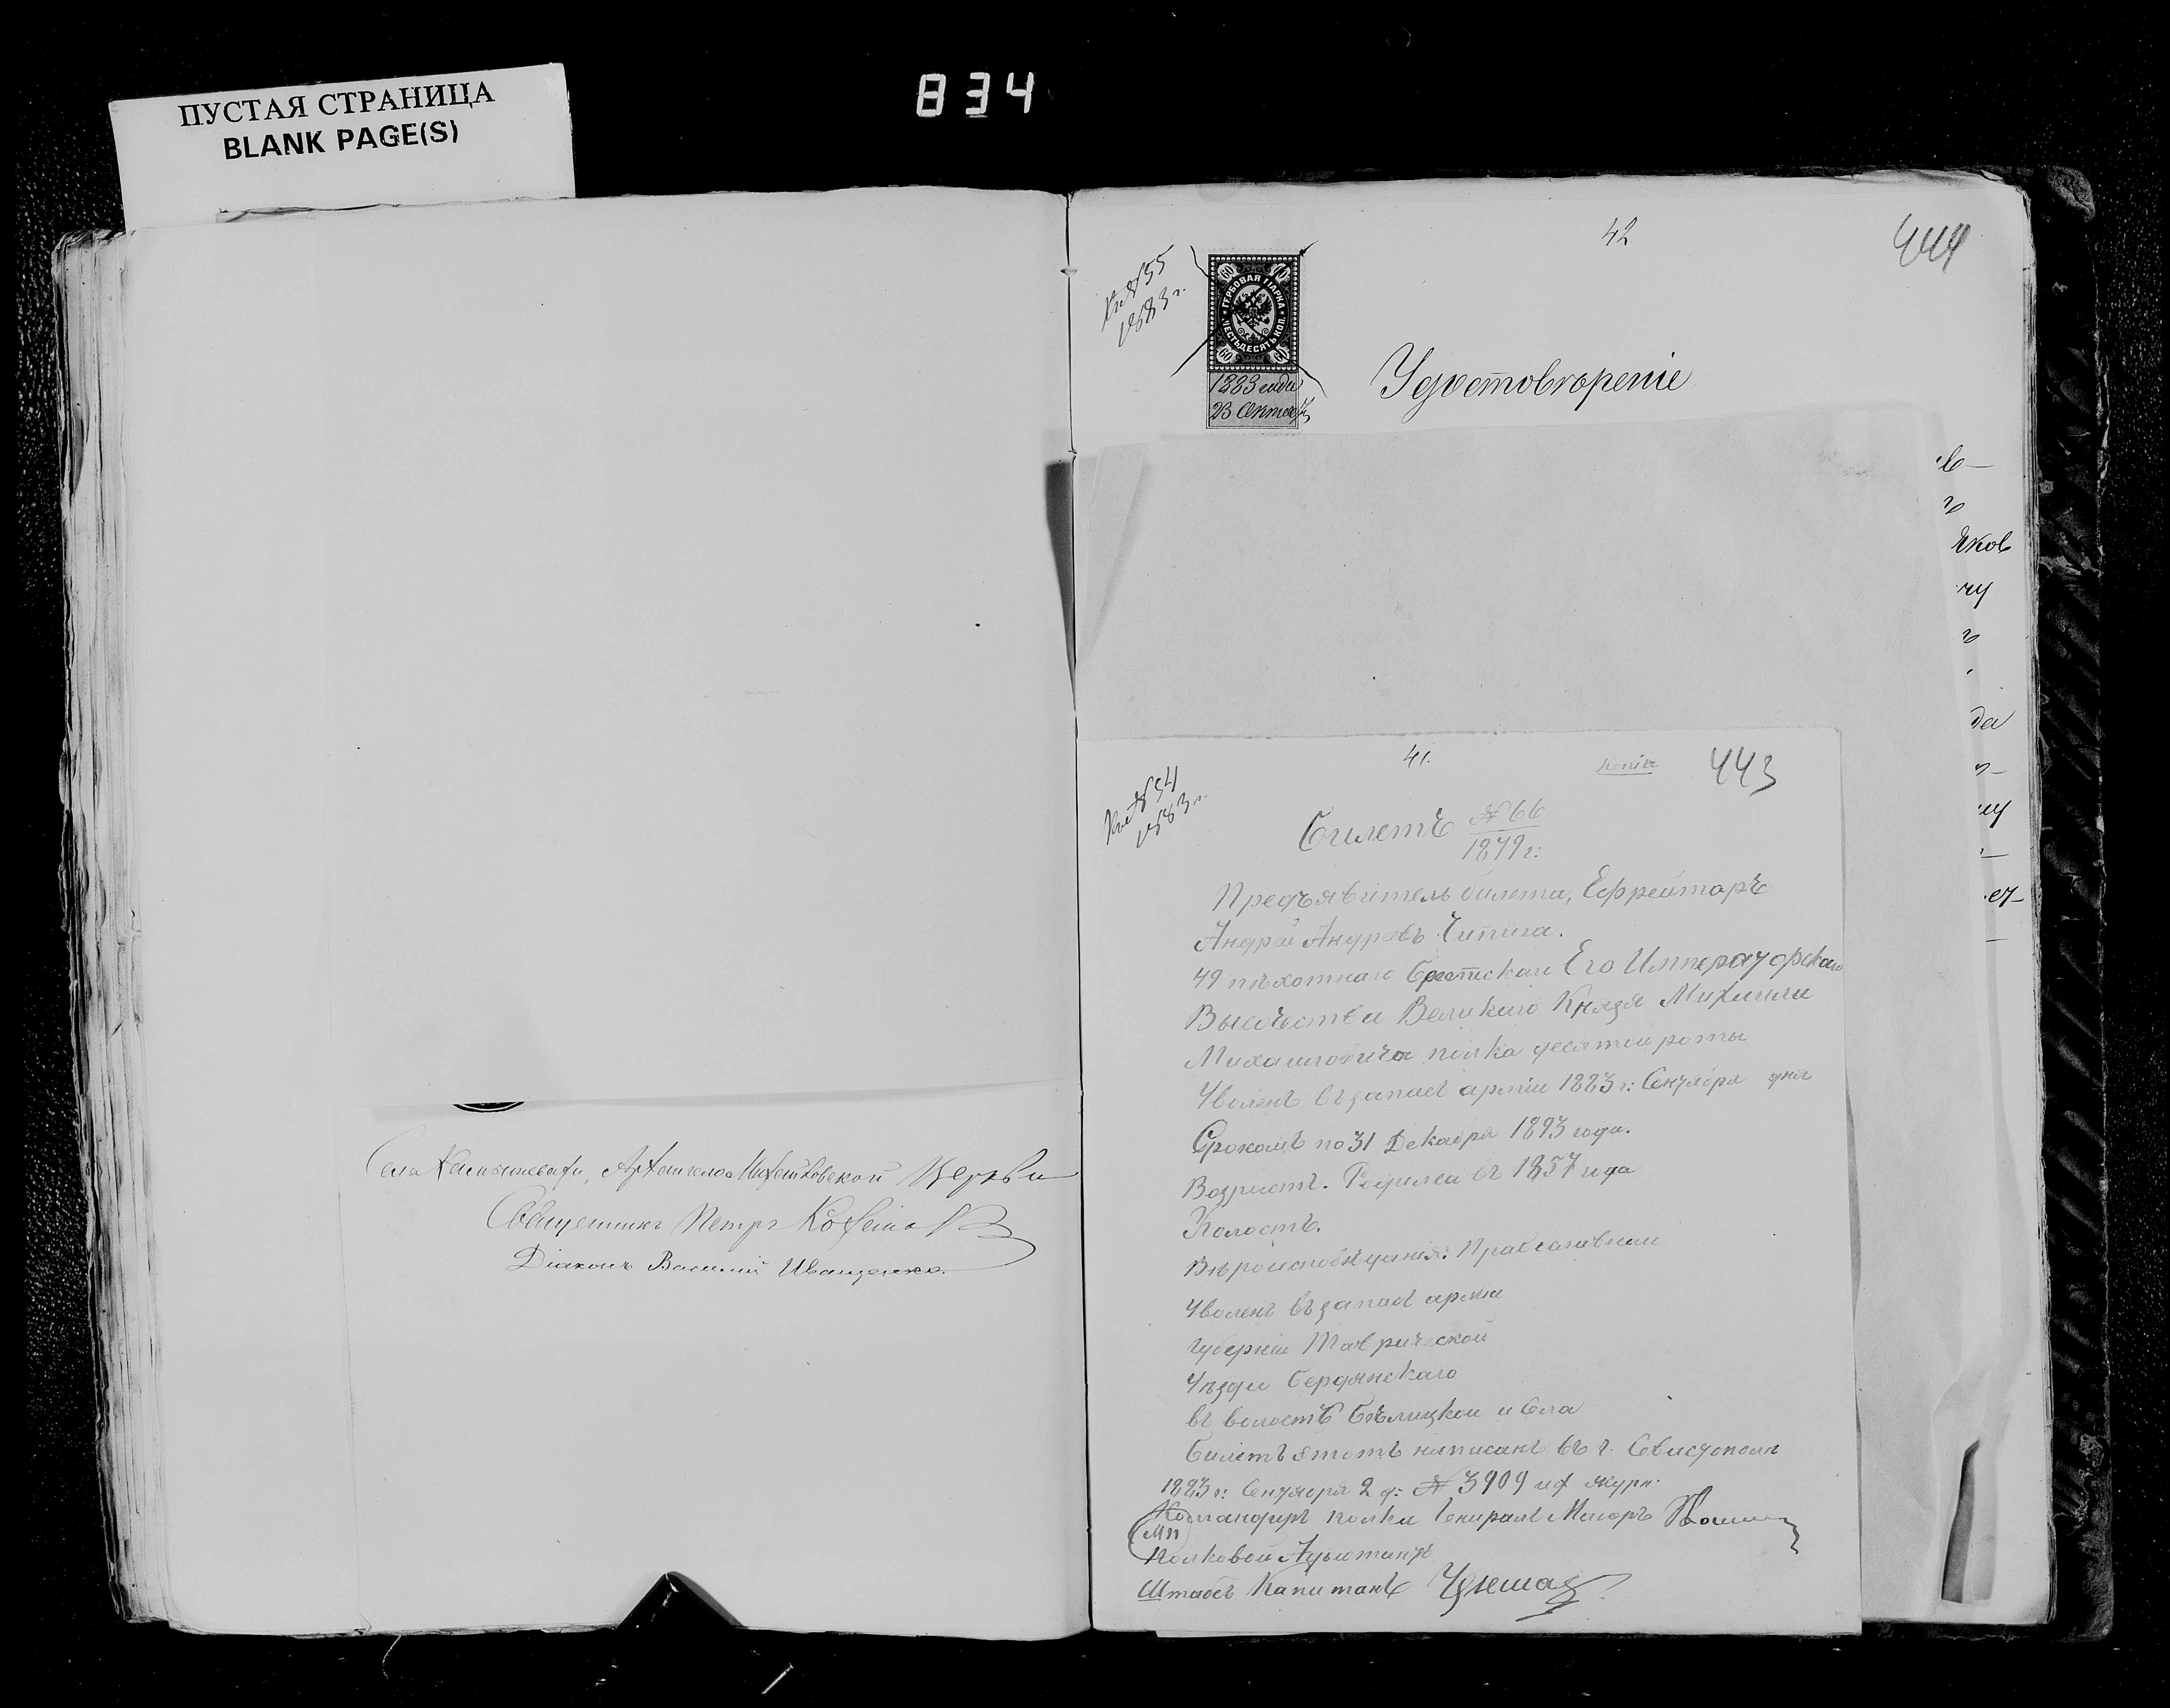 ПУСТАЯ СТРАНИЦА
BLANK PAGE(S)
834
Архангело Михайловской Церкви
Священникъ Петръ
Діаконъ Василій Иващенко.
42
444
№ 55
1883 г.
60 60
ГЕРБОВАЯ МАРКА
ШЕСТЬДЕСЯТЬ КОП.
60 60
1883 года
23 Октяб
Удостовѣреніе
ь—
ъ
яков
чу
ъ
да
му
41.
Копія
443
№ 54
1883 г.
Билетъ № 66
1879 г:
Предъявитель билета, Ефрейторъ
Андрей Андреевъ Чипига.
49 пѣхотнаго Брестскаго Его Императорскаго
Высочества Великаго Князя Михаила
Михаиловича полка десятой роты
Уволенъ въ запасъ арміи 1883 г: Сентября дня
Срокомъ по 31 Декабря 1893 года.
Возрастъ. Родился въ 1857 года
Холостъ.
Вѣроисповѣданія: Православнаго
Уволенъ въ запасъ арміи
Губерніи Таврической
Уѣзда Бердянскаго
въ волость Бѣлицкой и Села
Билетъ этотъ написанъ въ г. Севастополѣ
1883 г: Сентября 2 д: № 3909 журн:
Командиръ полка Генералъ Маіоръ
МП
Полковой Адъютантъ
Штабсъ Капитанъ